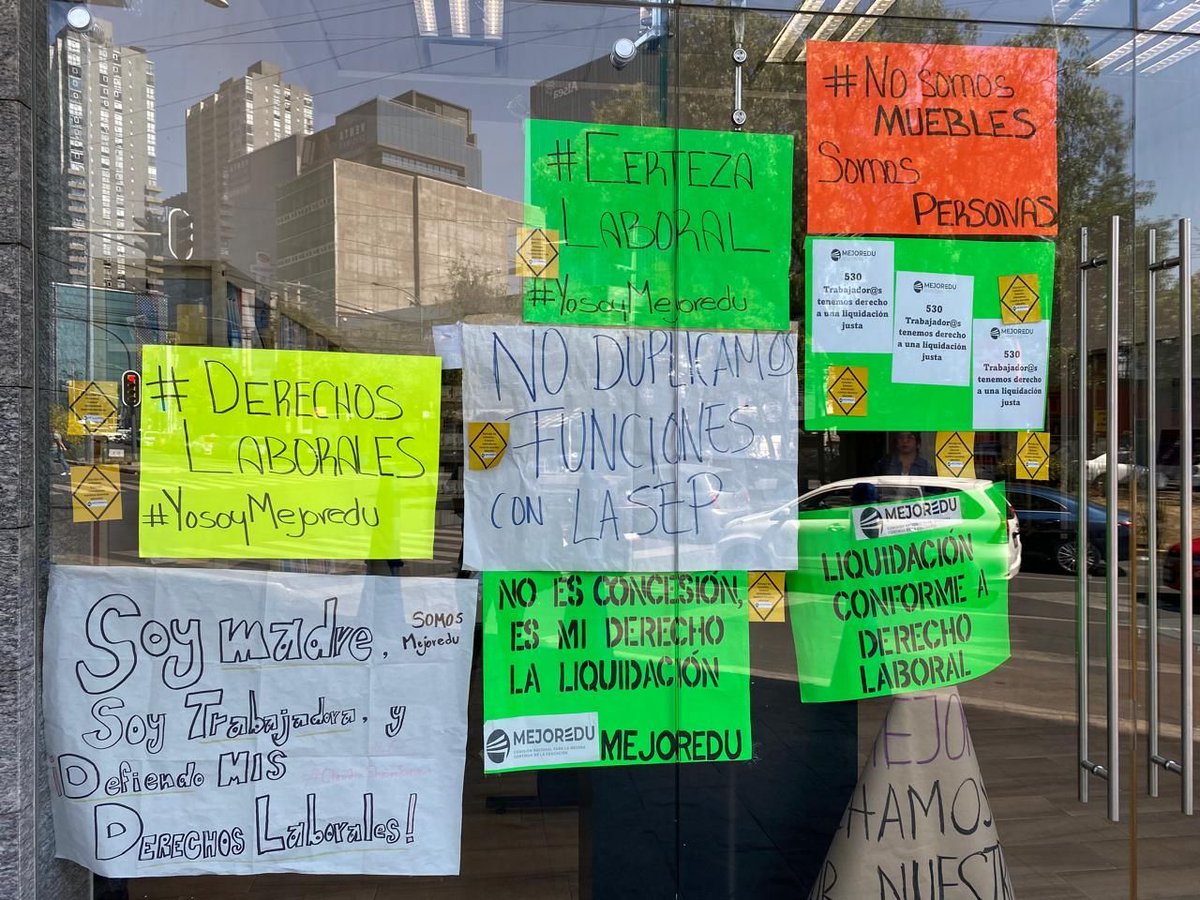 #No somos
MUEBLES
Somos
PERSONAS
#CERTEZA
LABORAL
#YosoyMejoredu
MEJOREDU
530
Trabajador@s
tenemos derecho
a una liquidación
justa
MEJOREDU
530
Trabajador@s
tenemos derecho
a una liquidación
justa
MEJOREDU
530
Trabajador@s
tenemos derecho
a una liquidación
justa
#DERECHOS
LABORALES
#YosoyMejoredu
NO DUPLICAMOS
FUNCIONES
CON LA SEP
MEJOREDU
LIQUIDACIÓN
CONFORME A
DERECHO
LABORAL
Soy madre,
SOMOS
Mejoredu
Soy Trabajadora, y
¡Defiendo MIS
DERECHOS Laborales!
NO ES CONCESIÓN,
ES MI DERECHO
LA LIQUIDACIÓN
MEJOREDU
COMISIÓN NACIONAL PARA LA MEJORA
CONTINUA DE LA EDUCACIÓN
MEJOREDU
MEJO
CHAMOS
NUEST